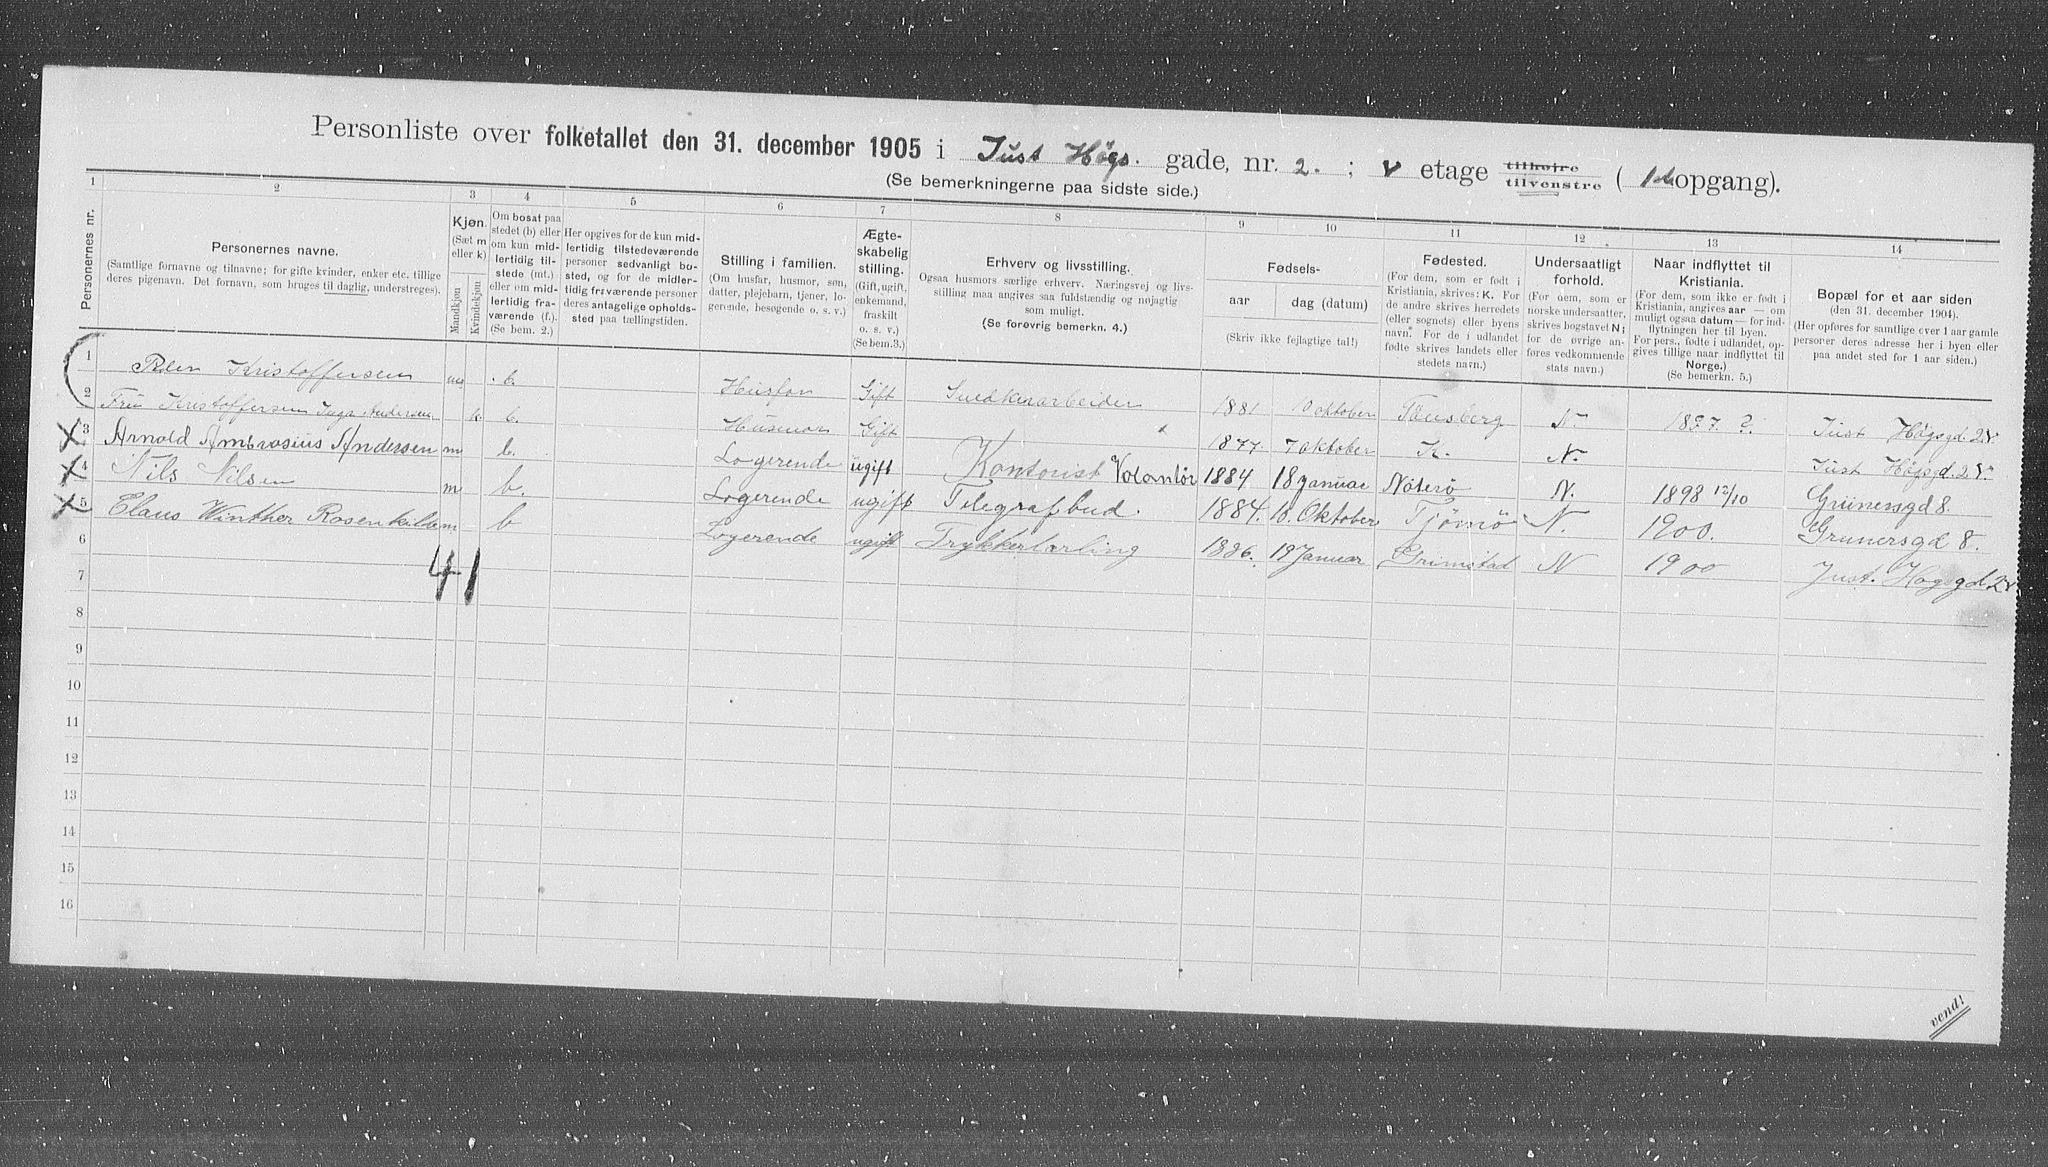 Personliste over folketallet den 31. december 1905 i Just Høgs. gade, nr. 2. ; V etage tilhøjre tilvenstre ( opgang).
(Se bemerkningerne paa sidste side.)
1 2 3 4 5 6 7 8 9 10 11 12 13 14
Personernes nr.
Personernes navne.
(Samtlige fornavne og tilnavne; for gifte kvinder, enker etc. tillige
deres pigenavn. Det fornavn, som bruges til daglig, understreges).
Kjøn.
(Sæt m
eller k)
Mandkjøn
Kvindekjøn
Om bosat paa
stedet (b) eller
om kun mid-
lertidig til-
stede (mt.)
eller om mid-
lertidig fra-
værende (f.).
(Se bem. 2.)
Her opgives for de kun mid-
lertidig tilstedeværende
personer sedvanligt bo-
sted, og for de midler-
tidig fraværende personer
deres antagelige opholds-
sted paa tællingstiden.
Stilling i familien.
(Om husfar, husmor, søn,
datter, plejebarn, tjener, lo-
gerende, besøgende o. s. v.)
Ægte-
skabelig
stilling.
(Gift, ugift,
enkemand,
fraskilt
o. s. v.)
(Se bem.3.)
Erhverv og livsstilling.
Ogsaa husmors særlige erhverv. Næringsvej og livs-
stilling maa angives saa fuldstændig og nøjagtig
som muligt.
(Se forøvrig bemerkn. 4.)
Fødsels-
aar dag (datum)
(Skriv ikke fejlagtige tal!)
Fødested.
(For dem, som er født i
Kristiania, skrives: K. For
de andre skrives herredets
(eller sognets) eller byens
navn. For de i udlandet
fødte skrives landets eller
stedets navn.)
Undersaatligt
forhold.
(For dem, som er
norske undersaatter,
skrives bogstavet N;
for de øvrige an-
føres vedkommende
stats navn.)
Naar indflyttet til
Kristiania.
(For dem, som ikke er født i
Kristiania, angives aar — om
muligt ogsaa datum — for ind-
flytningen her til byen.
For pers., fødte i udlandet, op-
gives tillige naar indflyttet til
Norge.)
(Se bemerkn. 5.)
Bopæl for et aar siden
(den 31. december 1904).
(Her opføres for samtlige over 1 aar gamle
personer deres adresse her i byen eller
paa andet sted for 1 aar siden.)
1 Kristoffersen m b. Husfar Gift 1881 oktober Tønsberg N. 1897 ? Just Høgsgd. 2 V
2 Fru Kristoffersen Inga Andersen k b. Husmor Gift 1877. 7 oktober K. N. Just Høgsgd. 2 V
3 Arnold Ambrosius Andersen m b. Logerende ugift Kontorist Volontør 1884 18 januar Nøterø N. 1898 12/10 Grünersgd 8.
4 Nils Nilsen m b. Logerende ugift Telegrafbud. 1884. 10. Oktober Tjømø N. 1900. Grünersgd 8.
5 Claus Winther Rosenkilde m b Logerende ugift Trykkerlærling 1886. 19 Januar Grimstad N 1900 Just. Høgsgd. 2 V.
6
41
7
8
9
10
11
12
13
14
15
16
vend!